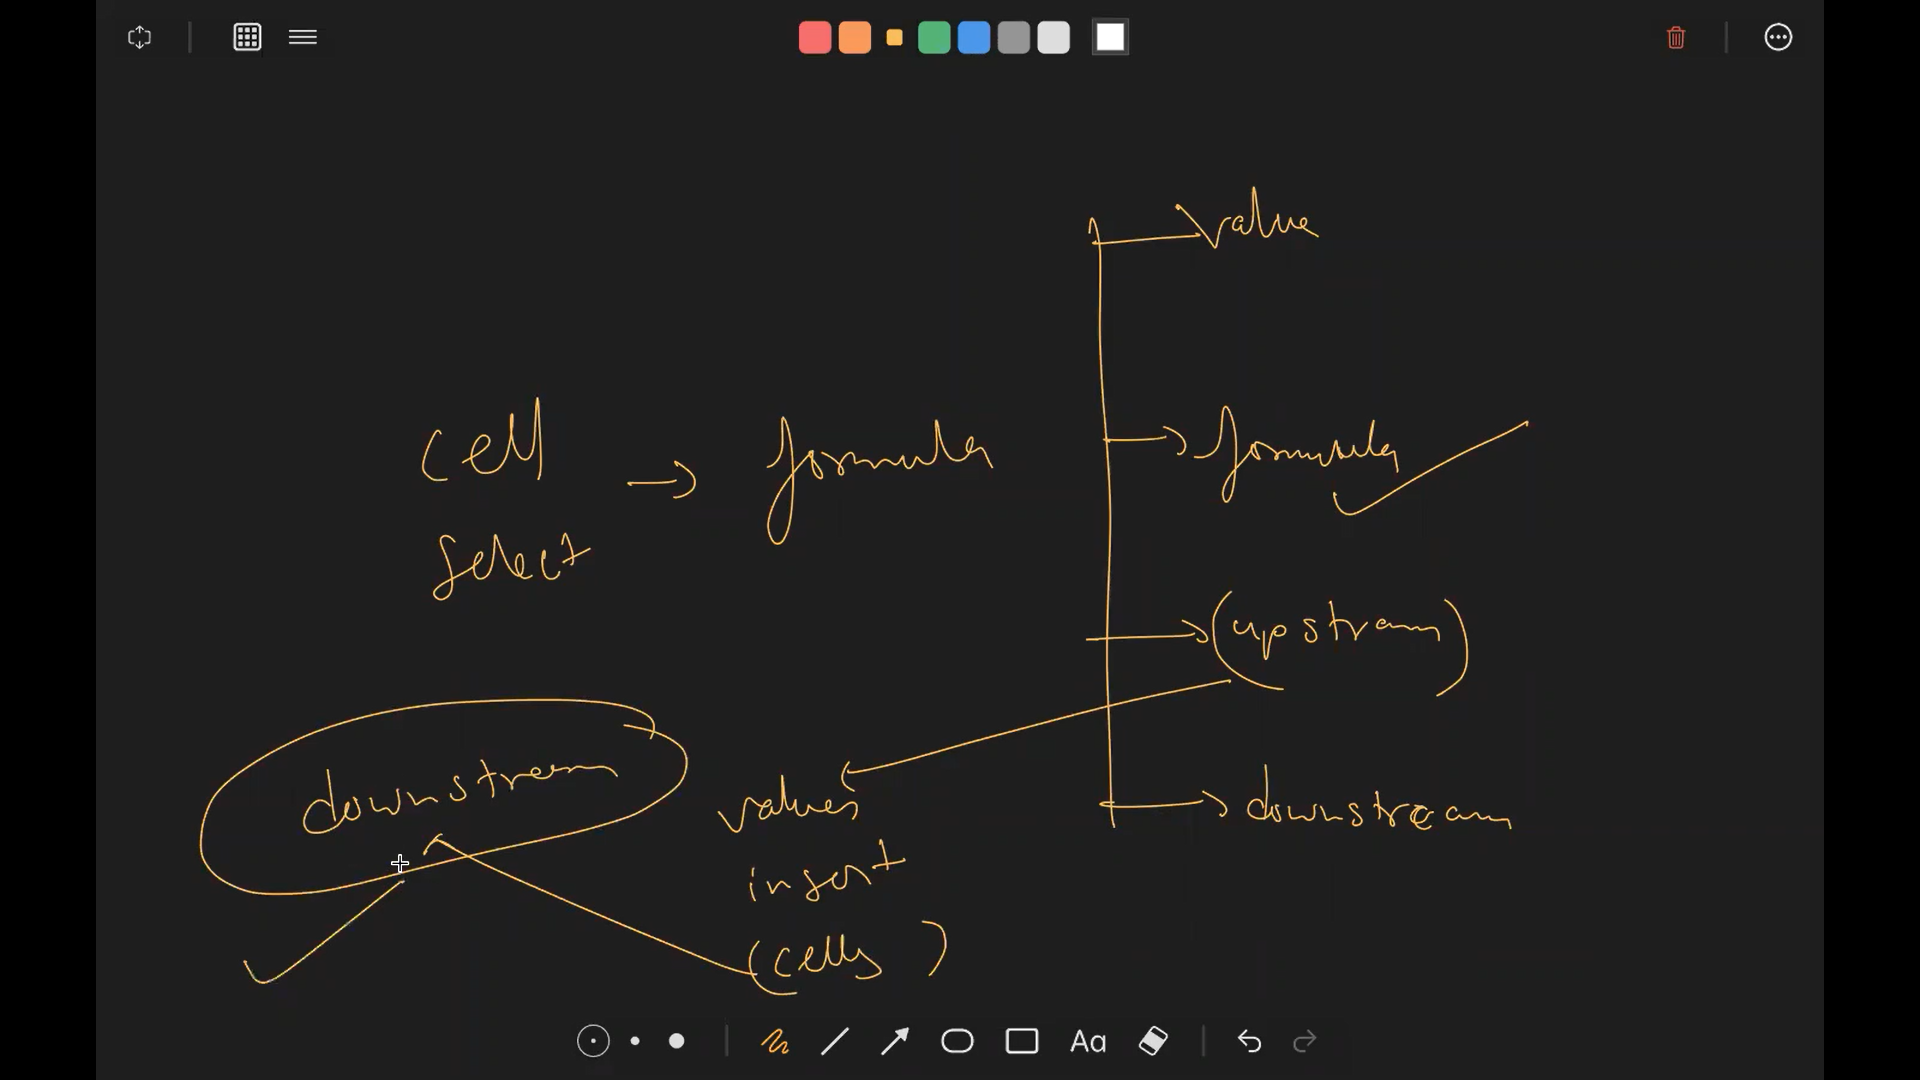 value
cell
select
→ formula
→ formula
→ (upstream)
→ downstream
values
insert
(cells )
downstream
Aa